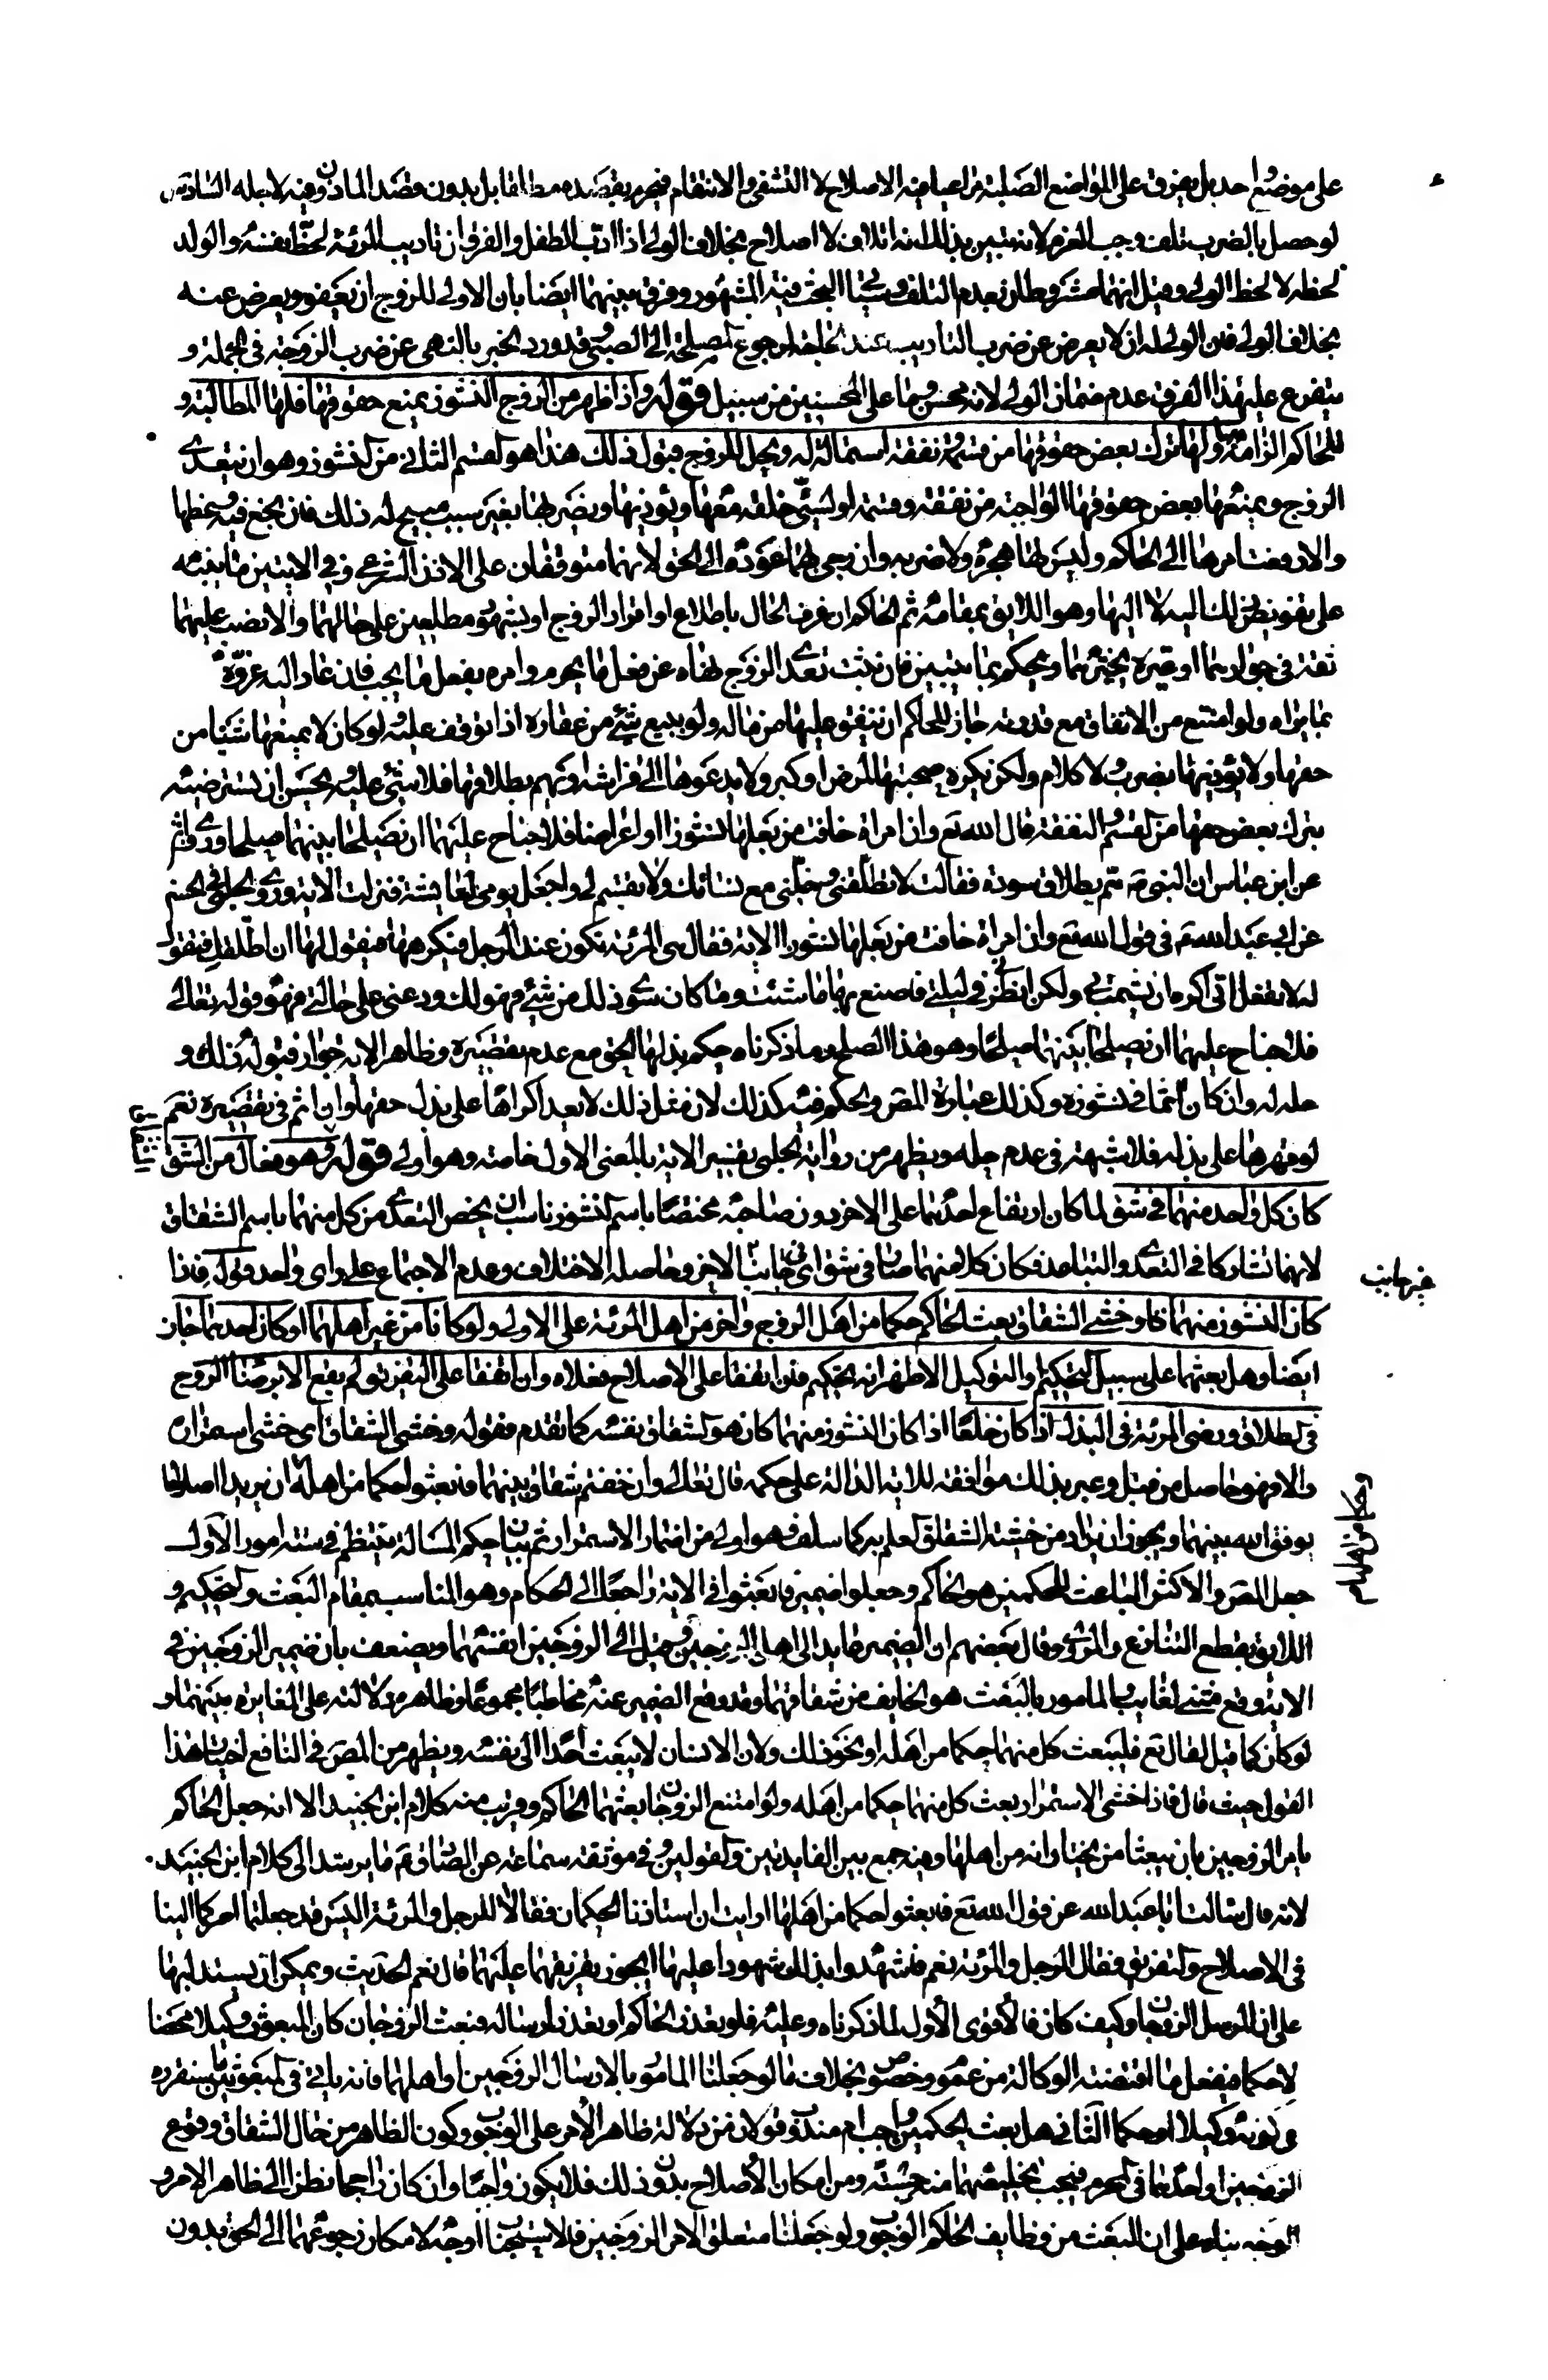 على موضع واحد بل يفرق على المواضع الصلبة مراعيا فيه الاصلاح لا التشفى والانتقام فيحرم بقصده مطلقا بل بدون قصد الماذون فيه لاجله السادس
لو حصل بالضرب تلف وجب الغرم لانه تبين بذلك انه اتلاف لا اصلاح بخلاف الولى اذا ادب الطفل والفرق ان تاديب المرئة لحظ نفسه والولد
لحظه لا لحظ الولى وقيل انهما مشتركان بعدم التلف وسيجئ البحث فيه المشهور وفرق بينهما ايضا بان الاولى للزوج ان يعفو ويعرض عنه
بخلاف الولى فان الولى له ان لا يعرض عن ضرب التاديب عند الحاجة لرجوع مصلحة الى الصبى وقد ورد الخبر بالنهى عن ضرب الزوجة فى الجملة و
يتفرع على هذا الفرق عدم ضمان الولى لانه محسن وما على المحسنين من سبيل قوله واذا ظهر من الزوج النشوز بمنع حقوقها فلها المطالبة و
للحاكم الزامه ولها ترك بعض حقوقها من قسمة ونفقة استمالة له ويحل للزوج قبول ذلك هذا هو القسم الثانى من النشوز وهو ان يتعدى
الزوج ويمنعها بعض حقوقها الواجبة من نفقة وقسمة او يسئ خلقه معها ويؤذيها ويضربها بغير سبب مبيح له ذلك فان نجع فيه وعظها
والا رفعت امرها الى الحاكم وليس لها هجره ولا ضربه وان رجى بهما عوده الى الحق لانهما متوقفان على الاذن الشرعى وفى الايتين ما ينبه
على تفويض ذلك اليه لا اليها وهو اللايق بمقامه ثم الحاكم ان عرف الحال باطلاع او اقرار الزوج او بشهود مطلعين على حالهما والا نصب عليهما
ثقة فى جوارهما او غيره يخبرهما ويحكم بما يتبين فان ثبت تعدى الزوج نهاه عن فعل ما يحرم وامره بفعل ما يجب فان عاد اليه عزره
بما يراه ولو امتنع من الانفاق مع قدرته جاز للحاكم ان ينفق عليها من ماله ولو ببيع شئ من عقاره اذا توقف عليه ولو كان لا يمنعها شيئا من
حقها ولا يؤذيها بضرب ولا كلام ولكن يكره صحبتها لمرض او كبر ولا يدعوها الى فراشه او يهم بطلاقها فلا شئ عليه ويحسن ان تسترضيه
بترك بعض حقها من القسم والنفقة قال الله تع وان امراة خافت من بعلها نشوزا او اعراضا فلا جناح عليهما ان يصلحا بينهما صلحا وروى
عن ابن عباس ان النبى ص هم بطلاق سودة فقالت لا تطلقنى وخلنى مع نسائك ولا تقسم لى واجعل يومى لعايشة فنزلت الاية وروى الحلبى فى الحسن
عن ابى عبد الله ع فى قول الله تع وان امراة خافت من بعلها نشوزا الاية فقال هى المرئة تكون عند الرجل فيكرهها فيقول لها ان اطلقك فتقول
له لا تفعل انى اكره ان يشمت بى ولكن انظر فى ليلتى فاصنع بها ما شئت وما كان سوى ذلك من شئ فهو لك ودعنى على حالتى فهو قوله تعالى
فلا جناح عليهما ان يصلحا بينهما صلحا وهو هذا الصلح وما ذكرناه حكم بذلها الحق مع عدم تقصيره وظاهر الاية جواز قبوله ذلك و
حله له وان كان اثما فى نشوزه وكذلك عبارة المصر والحكم فيه كذلك لان فعل ذلك لا يعد اكراها على بذل حقها وان اثم فى تقصيره نعم
لو قهرها على بذله فلا شبهة فى عدم حله ويظهر من رواية الحلبى تفسير الاية بالمعنى الاول خاصة وهو اولى قوله وهو فعال من الشق
كان كل واحد منهما فى شق لما كان ارتفاع احدهما على الاخر دون صاحبه مختصا باسم النشوز ناسب ان يخص التعدى من كل منهما باسم الشقاق
لانهما تشاركا فى التعدى والتباعد فكان كلا منهما صار فى شق اى فى جانب الاخر وحاصله الاختلاف وعدم الاجتماع على راى واحد قوله فاذا
غير جانب
كان النشوز منهما وخشى الشقاق بعث الحاكم حكما من اهل الزوج واخر من اهل المرئة على الاولى ولو كانا من غير اهلهما او كان احدهما جاز
ايضا وهل بعثهما على سبيل التحكيم او التوكيل الاظهر انه تحكيم فان اتفقا على الاصلاح فعلاه وان اتفقا على التفريق لم يقع الا برضا الزوج
فى الطلاق ورضى المرئة فى البذل اذا كان خلعا اذا كان النشوز منهما كان هو الشقاق نفسه كما تقدم فقوله وخشى الشقاق اى خشى استمراره
والا فهو حاصل من قبل وعبر بذلك موافقة للاية الدالة على حكمه قال تعالى وان خفتم شقاق بينهما فابعثوا حكما من اهله ان يريدا اصلاحا
وحكما من اهلها
يوفق الله بينهما ويجوز ان يراد من خشية الشقاق العلم به كما سلف فهو اولى من اضمار الاستمرار ثم بيان حكم المسالة ينتظم فى ستة امور الاول
جعل المصر والاكثر الباعث للحكمين هو الحاكم وجعلوا ضمير فابعثوا فى الاية راجعا الى الحكام وهو المناسب بمقام البعث والتحكيم و
اللايق بقطع التنازع والمروى وقال بعضهم ان الضمير عايد الى اهالى الزوجين وقيل الى الزوجين انفسهما ويضعف بان ضمير الزوجين فى
الاية وقع مثنى لغايب والمامور بالبعث هو الخايف من شقاقهما وقد وقع الضمير عنه مخاطبا مجموعا وظاهره دلالته على المغايرة بينهما و
لو كان كما قيل لقال تع فليبعث كل منهما حكما من اهله او نحو ذلك ولان الانسان لا يبعث احدا الى نفسه ويظهر من المصر فى النافع اختيار هذا
القول حيث قال فاذا خشى الاستمرار بعث كل منهما حكما من اهله ولو امتنع الزوجان بعثهما الحاكم وقريب منه كلام ابن الجنيد الا انه جعل الحاكم
يامر الزوجين بان يبعثا من يختارانه من اهلهما وفيه جمع بين الفايدتين والقولين وفى موثقة سماعة عن الصادق ع ما يرشد الى كلام ابن الجنيد
لانه قال سالت ابا عبد الله عن قول الله تع فابعثوا حكما من اهلها ارايت ان استاذن الحكمان فقالا للرجل والمرئة اليس قد جعلتما امركما الينا
فى الاصلاح والتفريق فقال الرجل والمرئة نعم فاشهدوا بذلك شهودا عليهما ايجوز تفريقهما عليهما قال نعم الحديث ويمكن ان يستدل بها
على ان المرسل الزوجان وكيف كان فالاقوى الاول لما ذكرناه وعليه فلو تعذر الحاكم او تعذر ارساله فبعث الزوجان كان المبعوث وكيلا محضا
لا حكما فيفعل ما اقتضته الوكالة من عموم وخصوص بخلاف ما لو جعلنا المامور بالارسال الزوجين او اهلهما فانه ياتى فى المبعوثين ما سنقرره
فى كونه وكيلا او حكما الثانى هل بعث الحكمين واجب ام مندوب قولان من دلالة ظاهر الامر على الوجوب وكون الظاهر من حال الشقاق وقوع
الزوجين او احدهما فى المحرم فيجب تخليصهما منه حسبة ومن امكان الاصلاح بدون ذلك فلا يكون واجبا وان كان راجحا نظرا الى ظاهر الامر و
الوجه بناء على ان البعث من وظايف الحاكم الوجوب ولو جعلنا متعلق الامر الزوجين فالاستحباب اوجه لامكان رجوعهما الى الحق بدون